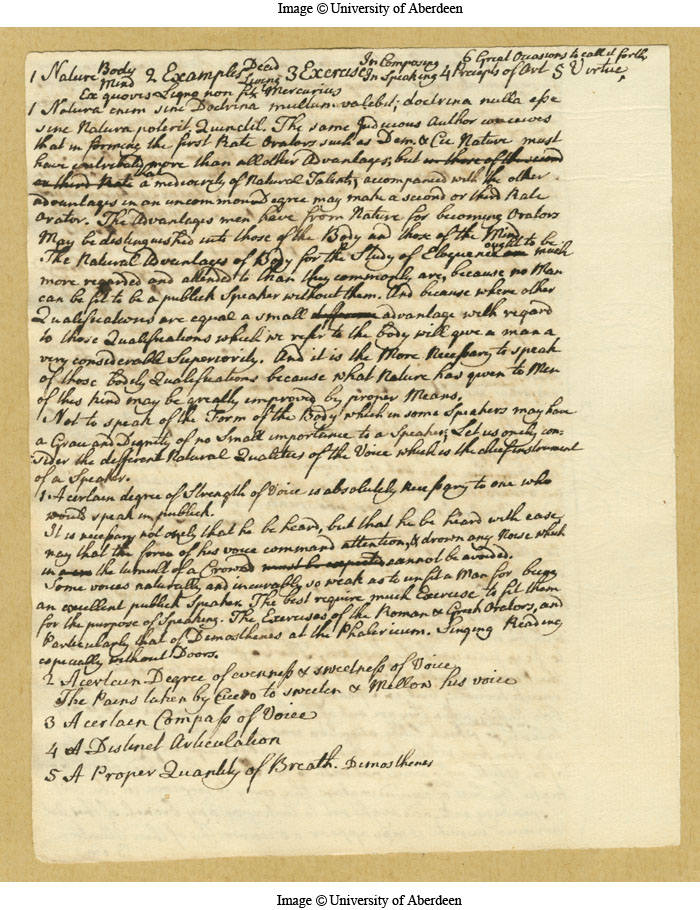 Image © University of Aberdeen
1 Nature Body Mind 2 Examples Dead Living 3 Exercise In Composing In Speaking 4 Precepts of Art 5 Virtue 6 Great Occasions to call it forth
Ex quovis Ligno non fit Mercurius
1 Natura enim sine Doctrina multum valebit; doctrina nulla esse
sine Natura poterit. Quinctil. The same Judicious Author conceives
that in forming the first Rate Orators such as Dem. & Cic Nature must
have contributed more than all other Advantages; but or those of the second
or third Rate that a mediocrity of Natural Talents, accompanied with the other
advantages in an uncommon degree may make a second or third Rate
Orator. The Advantages men have from Nature for becoming Orators
May be distinguished into those of the Body and those of the Mind
The Natural Advantages of Body for the Study of Eloquence ought to be much
more regarded and attended to than they commonly are, because no Man
can be fit to be a publick Speaker without them. And because where other
Qualifications are equal a small difference advantage with regard
to those Qualifications which we refer to the body will give a man a
very considerable Superiority. And it is the More Necessary to speak
of those bodely Qualifications because what Nature has given to Men
of this kind may be greatly improved by proper Means.
Not to speak of the Form of the Body which in some Speakers may have
a Grace and Dignity of no Small importance to a Speaker; Let us onely con-
sider the different Natural Qualities of the Voice which is the chief instrument
of a Speaker.
1 A certain degree of Strength of Voice is absolutely necessary to one who
would speak in publick.
It is necessary not onely that he be heard, but that he be heard with ease
nay that the force of his voice command attention, & drown any Noise which
in the tumult of a Crowd must be expected cannot be avoided.
Some voices naturally and incurably so weak as to unfit a Man for being
an excellent publick Speaker. The best require much Exercise to fit them
for the purpose of Speaking. The Exercises of the Roman & Greek Orators, and
Particularly that of Demosthenes at the Phalericum. Singing Reading
especially without Doors.
2 A certain Degree of evenness & sweetness of Voice
The Pains taken by Cicero to sweeten & Mellow his voice
3 A certain Compass of Voice
4 A Distinct Articulation
5 A Proper Quantity of Breath. Demosthenes
Image © University of Aberdeen